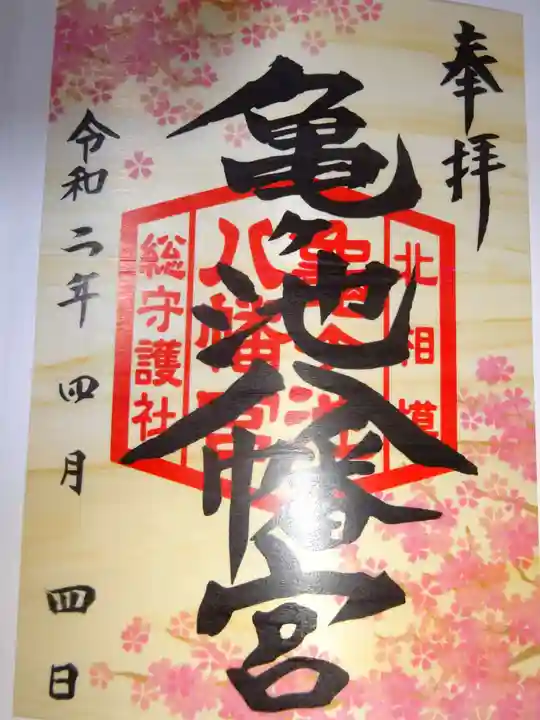 奉拝
亀ヶ池八幡宮
北相模
亀ヶ池
八幡宮
総守護社
令和二年 四月 四日